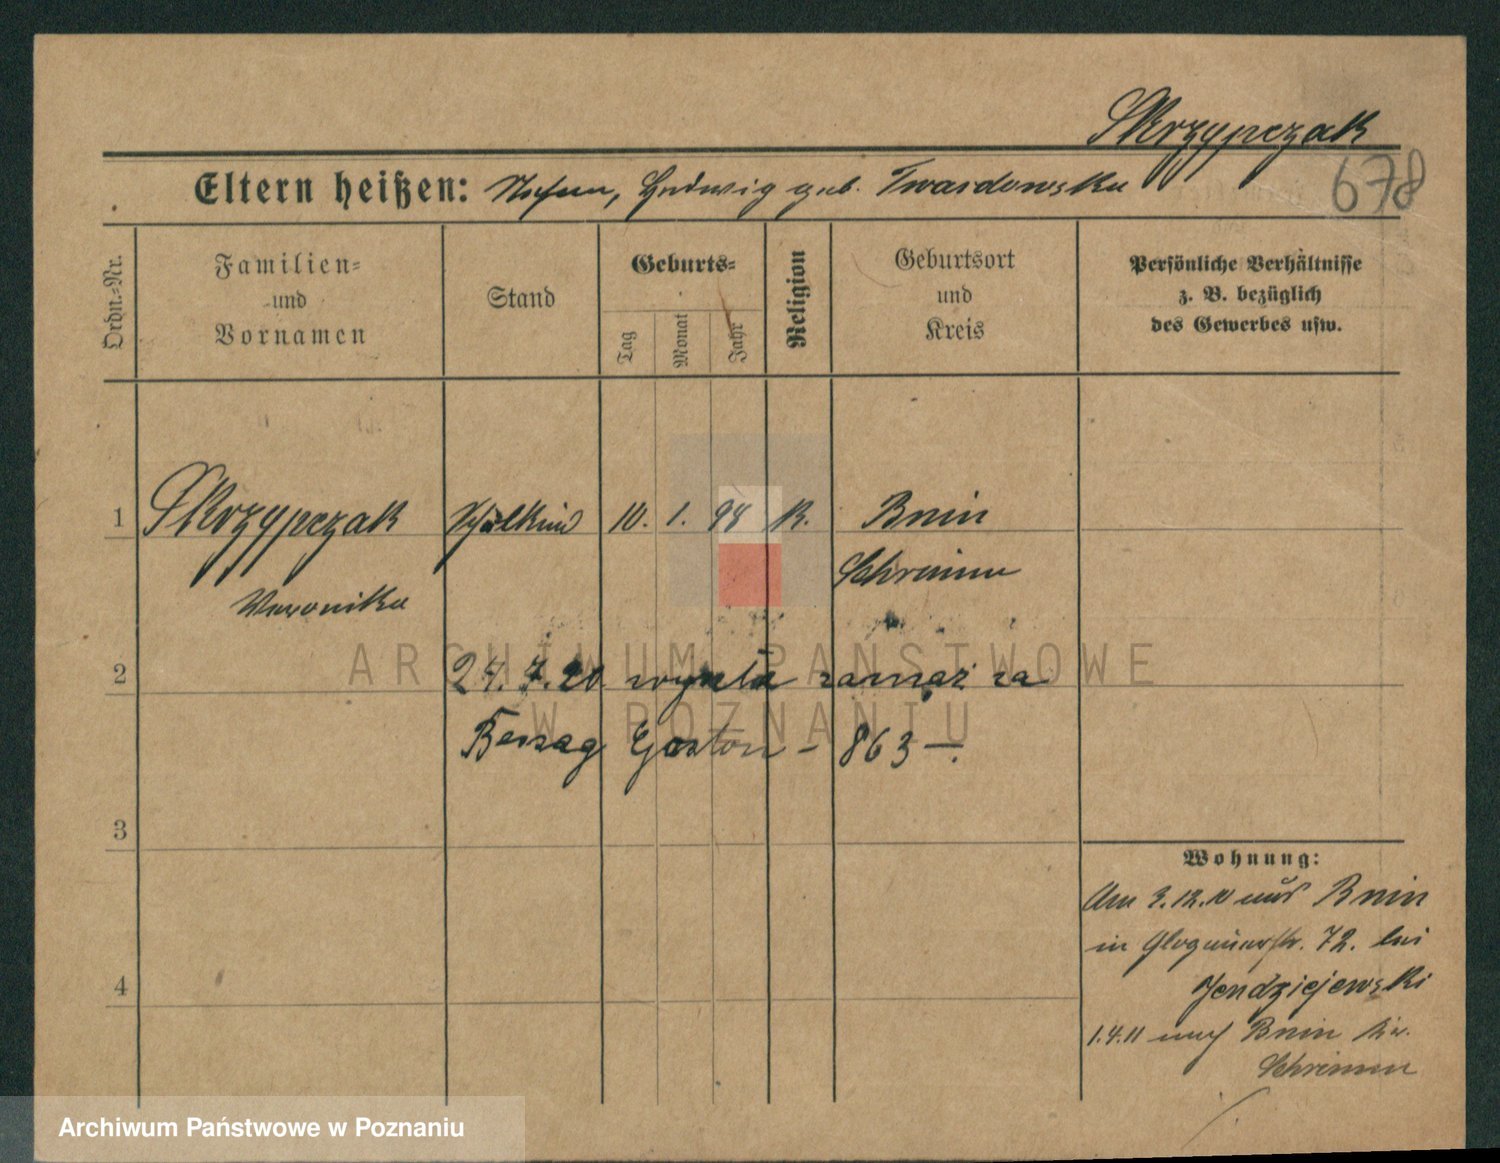 Skrzypczak
678
Eltern heißen: Hedwig geb. Twardowska
Ordn.-Nr.
Familien-
und
Vornamen
Stand
Geburts-
Tag
Monat
Jahr
Religion
Geburtsort
und
Kreis
Persönliche Verhältnisse
z. B. bezüglich
des Gewerbes usw.
1 Skrzypczak 10. 1. 98 k. Bnin
Schrimm
Veronika
2 24.7.20 wyszła zamąż za
Gaston - 863 -.
3
4
Wohnung:
Am 3.12.10 aus Bnin
in Glogauerstr. 72. bei
Jendziejewski
1.4.11 nach Bnin Kr.
Schrimm
ARCHIWUM PAŃSTWOWE
W POZNANIU
Archiwum Państwowe w Poznaniu